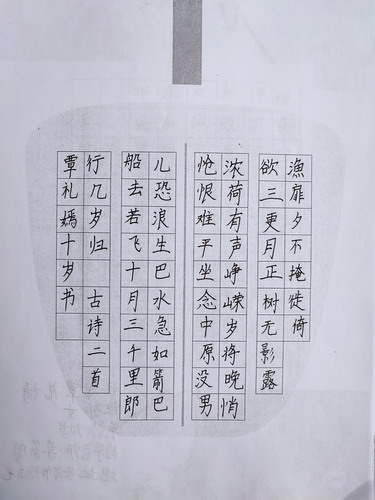 漁扉夕不掩徙倚
欲三更月正树无影露
浓荷有声峥嵘岁将晚悄
怆恨难平坐念中原没男
儿恐浪生巴水急如箭巴
船去若飞十月三千里郎
行几岁归 古诗二首
覃礼嫣十岁书